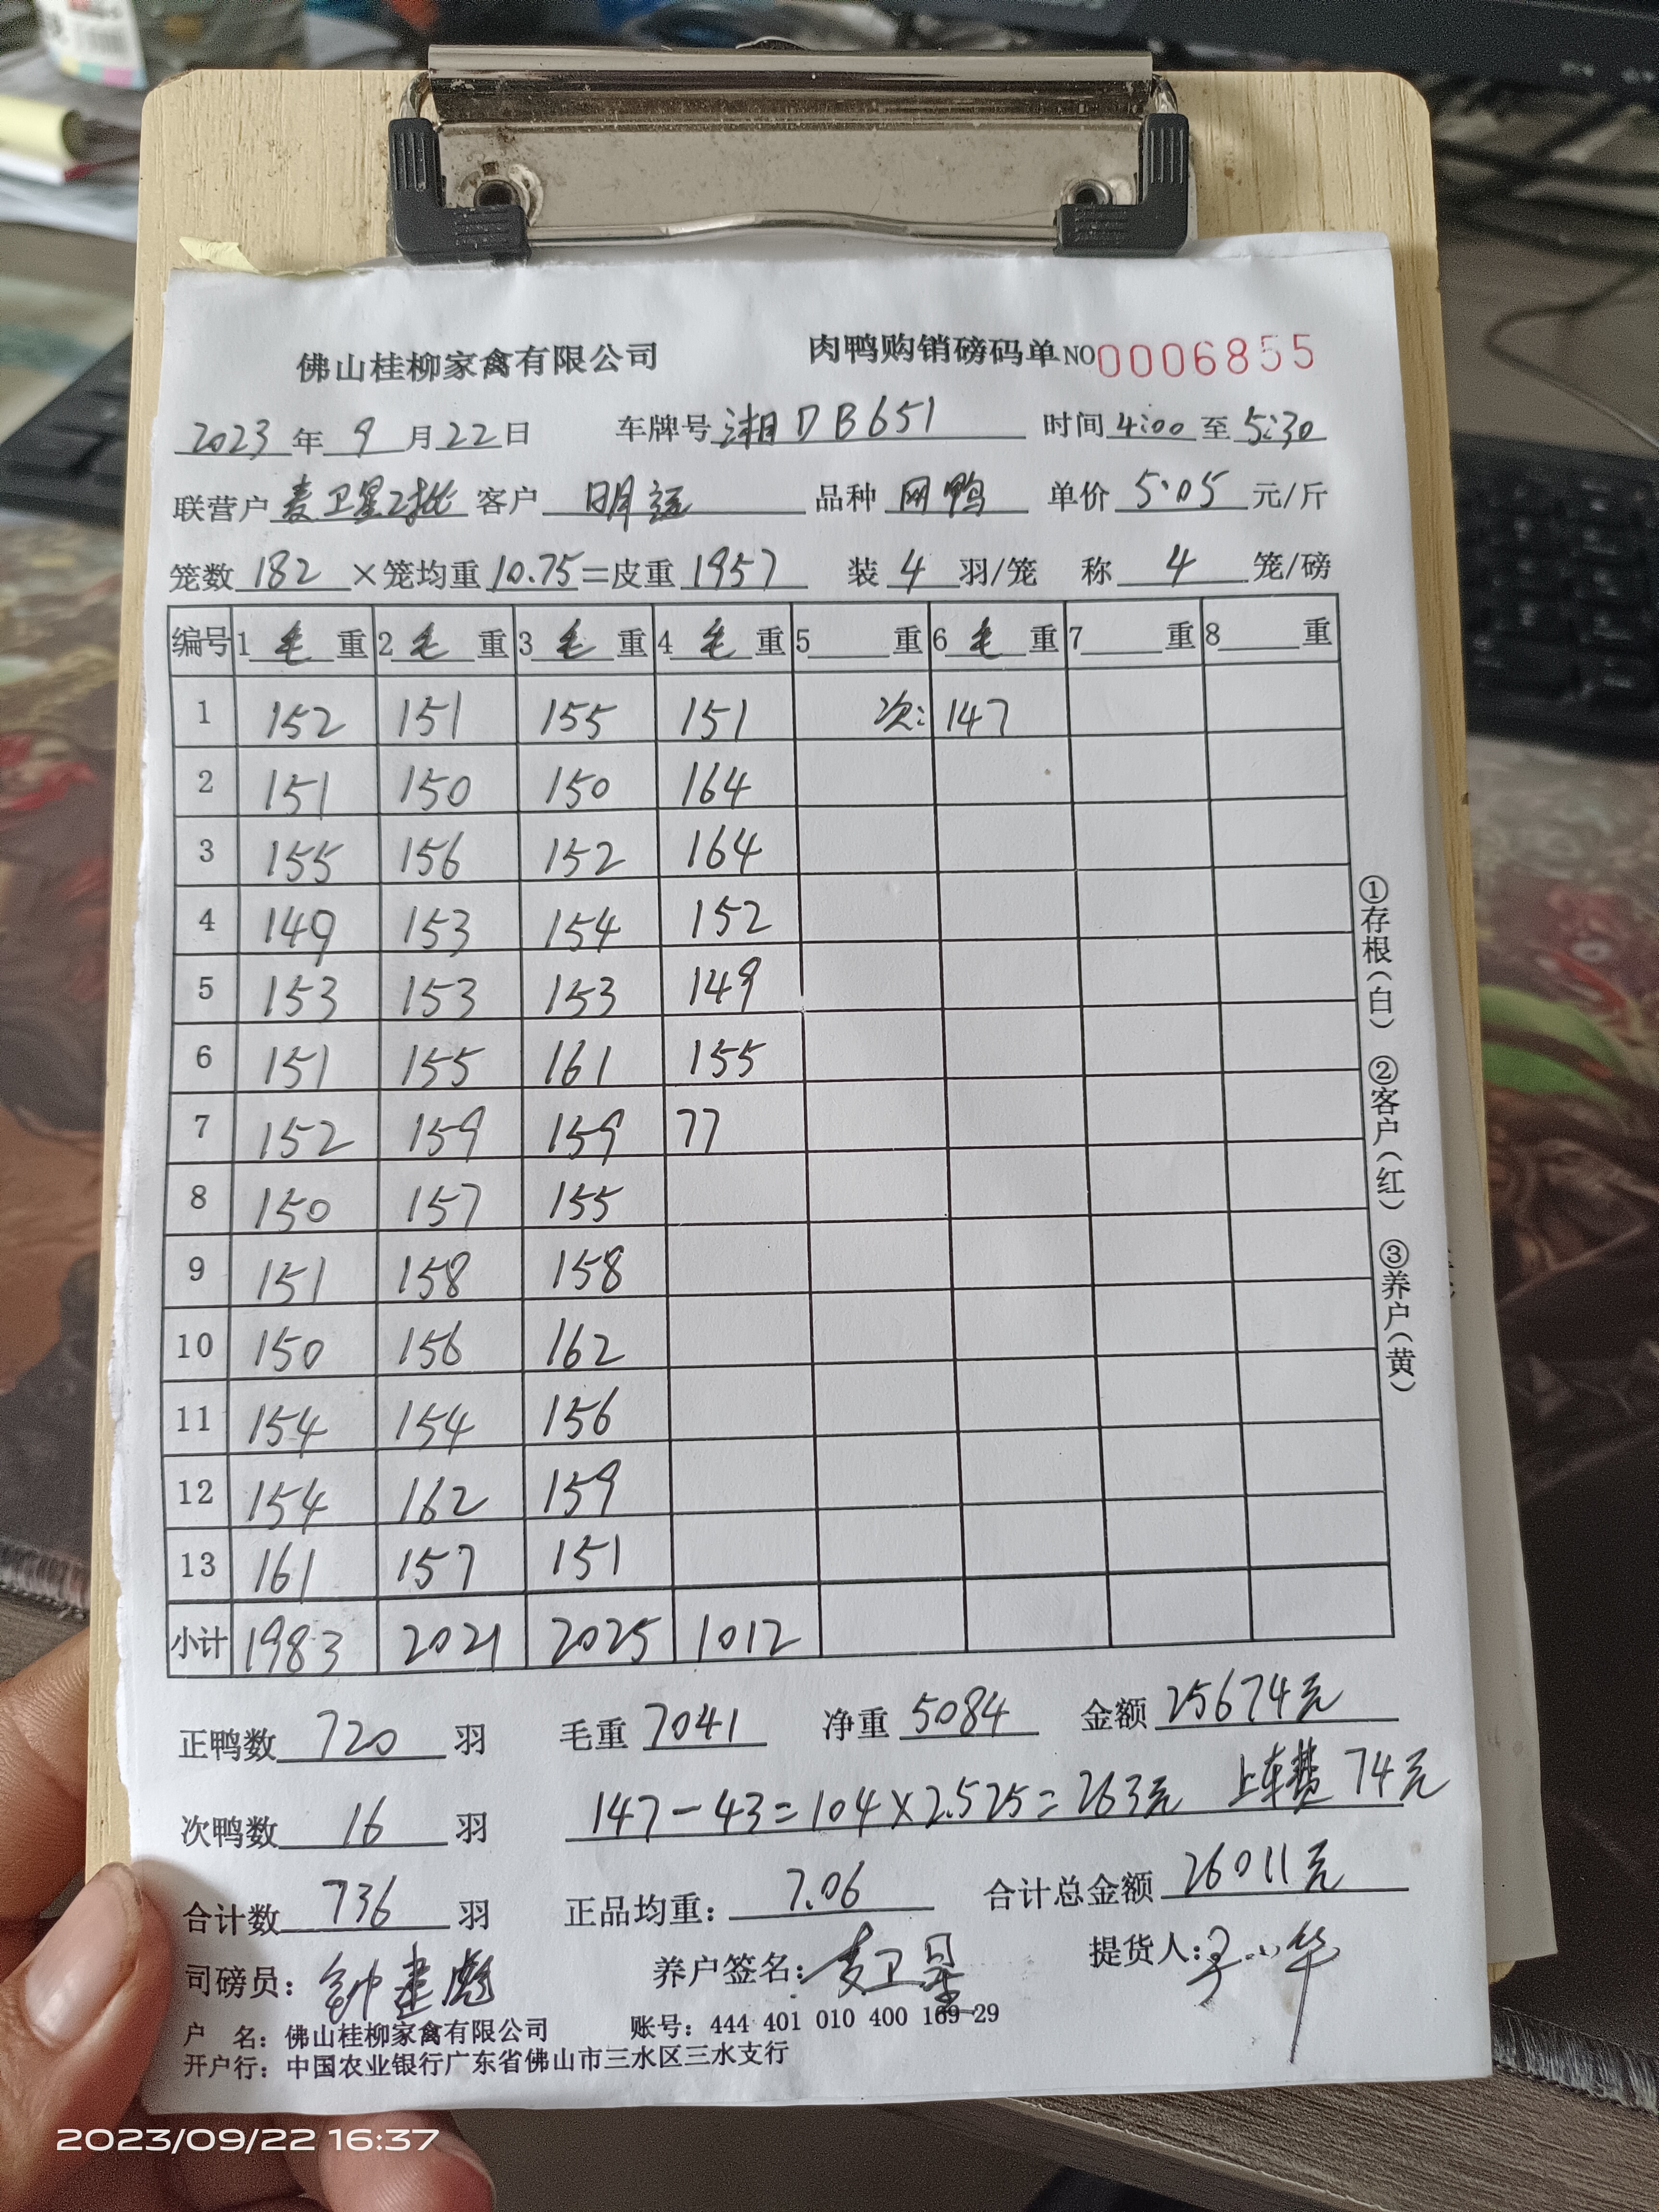 佛山桂柳家禽有限公司 肉鸭购销磅码单 NO0006855
2023年9月22日 车牌号湘DB651 时间4:00至5:30
联营户麦卫星2批 客户明远 品种网鸭 单价5.05元/斤
笼数182×笼均重10.75=皮重1957 装4羽/笼 称4笼/磅
编号 1毛重 2毛重 3毛重 4毛重 5重 6毛重 7重 8重
1 152 151 155 151 次: 147
2 151 150 150 164
3 155 156 152 164
4 149 153 154 152
5 153 153 153 149
6 151 155 161 155
7 152 159 159 77
8 150 157 155
9 151 158 158
10 150 156 162
11 154 154 156
12 154 162 159
13 161 157 151
小计 1983 2021 2025 1012
正鸭数720羽 毛重7041 净重5084 金额25674元
次鸭数16羽 147-43=104×2.525=263元 上车费74元
合计数736羽 正品均重:7.06 合计总金额26011元
司磅员:钟建彪 养户签名:麦卫星 提货人:
户 名:佛山桂柳家禽有限公司 账号:444 401 010 400 169 29
开户行:中国农业银行广东省佛山市三水区三水支行
①存根(白) ②客户(红) ③养户(黄)
2023/09/22 16:37